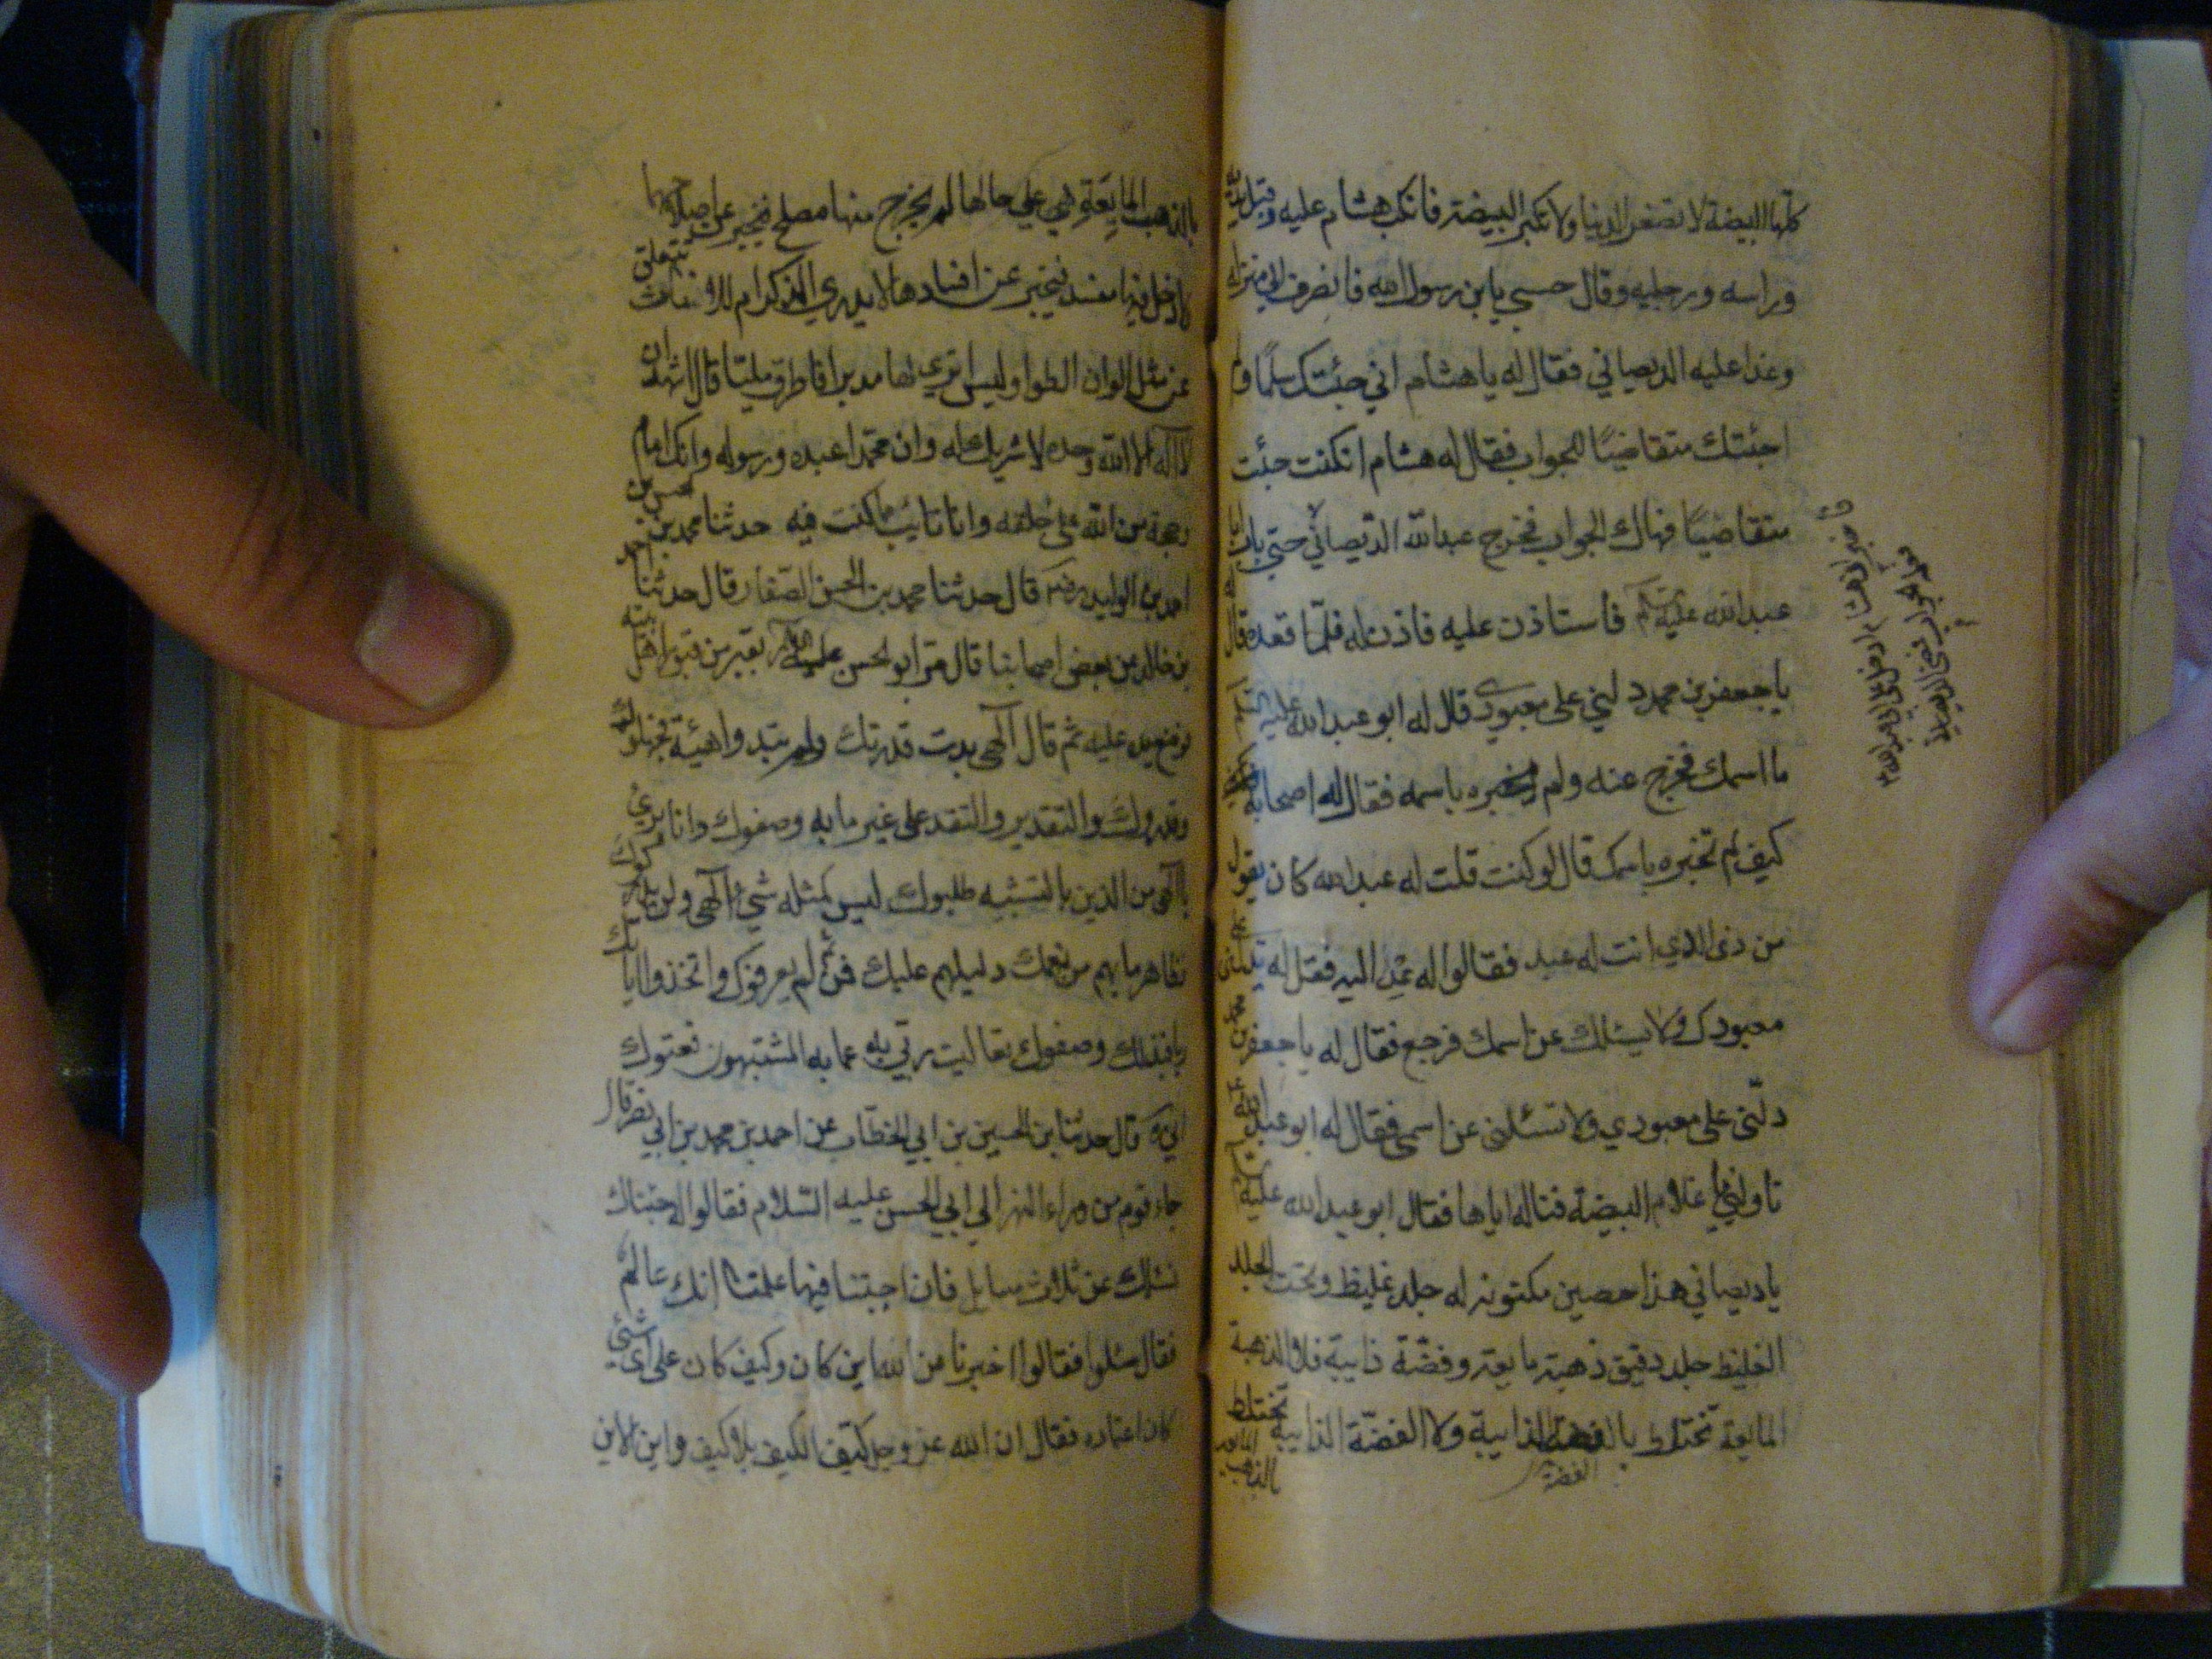 كلها البيضة لا تصغر الدنيا ولا تكبر البيضة فانكب هشام عليه وقبل يديه
وراسه ورجليه وقال حسبي يابن رسول الله فانصرف الي منزله
وغدا عليه الديصاني فقال له يا هشام اني جئتك مسلما ولم
اجئتك متقاضيًا للجواب فقال له هشام ان كنت جئت
متقاضيًا فهاك الجواب فخرج عبدالله الدّيصاني حتي باب ابا
عبدالله عليه فأستاذن عليه فاذن له فلمّا قعد قال
يا جعفر بن محمد دلني علي معبودي قال له ابو عبدالله عليه
ما اسمك فخرج عنه ولم يخبره باسمه فقال له اصحابه
كيف لم تخبره باسمك قال لو كنت قلت له عبدالله كان يقول
من ذي الذي انت له عبد فقالوا له عد اليه فقل له
معبودك ولا يسئلك عن اسمك فرجع فقال له يا جعفر بن
دلّني علي معبودي ولا تسئلني عن اسمي فقال له ابو عبدالله
ناولني يا غلام البيضة فناله اياها فقال ابو عبدالله عليه
يا ديصاني هذا حصين مكنون له جلد غليظ وتحت الجلد
الغليظ جلد دقيق ذهبة مايعة وفضّة ذايبة فلا الذهبة
المايعة تختلط بالفضة الذايبة ولا الفضّة الذايبة تختلط
بالذهب
الفضة
بالذهب المايعة هي علي حالها لم يخرج منها مصلح فيخبر عن صلاحها
لا دخل فيها مفسد فيخبر عن افسادها لا يدري الذكر ام للانثي تنفلق
عن مثل الوان الطواويس اتري لها مدبرا فاطرق مليّا قال اشهد ان
لا اله الا الله وحده لا شريك له وان محمّدا عبده ورسوله وانك امام
وحجة من الله علي خلقه وانا تايب مما كنت فيه حدثنا محمد بن الحسن بن
احمد بن الوليد قال حدثنا محمد بن الحسن الصّفار قال حدثنا
بن خالد عن بعض اصحابنا قال مرّ ابو الحسن عليه بقبر من قبور اهل بيته
فوضع يده عليه ثم قال الهي بدت قدرتك ولم تبد واهيئة فجهلوك
وقدروك والتقدير علي غير ما به وصفوك وانا بريئ
يا الهي من الذين بالتشبيه طلبوك ليس كمثله شيئ الهي ولن يدركوك
فظاهر ما بهم من نعمك دليلهم عليك فمن ثم لم يعرفوك واتخذوا اياتك
ربا فبذلك وصفوك تعاليت ربي عما به المشتبهون نعتوك
ابي قال حدثنا بن الحسين بن ابي الخطّاب عن احمد بن محمد بن ابي نصر قال
جاء قوم من وراء النهر الي ابي الحسن عليه السّلام فقالوا له جئناك
نسئلك عن ثلاث مسايل فان اجبتنا فيها علمنا انك عالم
فقال سلوا فقالوا اخبرنا من الله اين كان وكيف كان علي اي شئي
كان اعتماده فقال ان الله عز وجل كيّف الكيف بلا كيف واين الاين